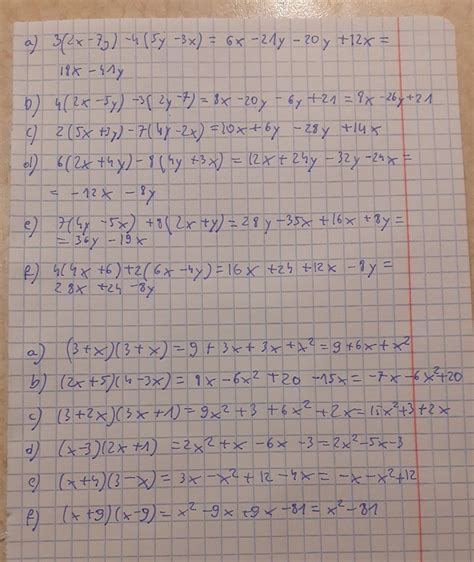 a) 3(2x-7y) -4(5y -3x) = 6x -21y -20y +12x =
18x -41y
b) 4(2x-5y) -3(2y-7) = 8x -20y -6y +21 = 8x -26y +21
c) 2(5x+3y) -7(4y-2x) = 10x +6y -28y +14x
d) 6(2x+4y) -8(4y+3x) = 12x +24y -32y -24x =
= -12x -8y
e) 7(4y -5x) +8(2x+y) = 28y -35x +16x +8y =
= 36y -19x
f) 4(4x+6) +2(6x -4y) = 16x +24 +12x -8y =
28x +24 -8y
a) (3+x)(3+x) = 9 + 3x + 3x + x² = 9 + 6x + x²
b) (2x+5)(4-3x) = 8x -6x² +20 -15x = -7x -6x² +20
c) (3+2x)(3x+1) = 9x² +3 +6x² +2x = 15x² +3 +2x
d) (x-3)(2x+1) = 2x² +x -6x -3 = 2x² -5x -3
e) (x+4)(3-x) = 3x -x² +12 -4x = -x -x² +12
f) (x+9)(x-9) = x² -9x +9x -81 = x² -81